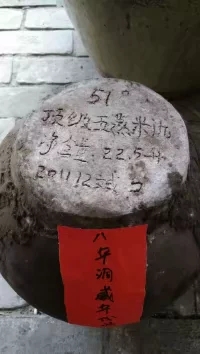 51°
顶级五蒸米酒
净进.22.5斤
201112封口
八年洞藏年